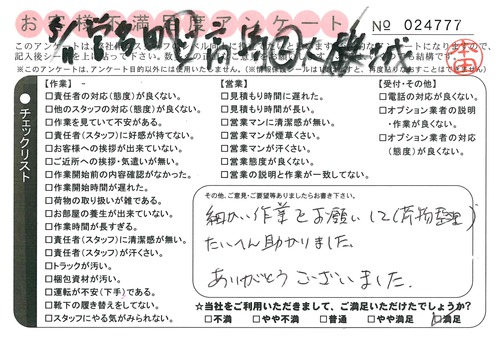 お客様不満足度アンケート
No 024777
【作業】
□責任者の対応(態度)が良くない。
□他のスタッフの対応(態度)が良くない。
□作業を見ていて不安がある。
□責任者(スタッフ)に好感が持てない。
□お客様への挨拶が出来ていない。
□ご近所への挨拶・気遣いが無い。
□作業開始前の内容確認がなかった。
□作業開始時間が遅れた。
□荷物の取り扱いが雑である。
□お部屋の養生が出来ていない。
□作業時間が長すぎる。
□責任者(スタッフ)に清潔感が無い。
□責任者(スタッフ)が汗くさい。
□トラックが汚い。
□梱包資材が汚い。
□運転が不安(下手)である。
□靴下の履き替えをしてない。
□スタッフにやる気がみられない。
チェックリスト
【営業】
□見積もり時間に遅れた。
□見積もり時間が長い。
□営業マンに清潔感が無い。
□営業マンが煙草くさい。
□営業マンが汗くさい。
□営業態度が良くない。
□営業の説明と作業が一致してない。
【受付・その他】
□電話の対応が良くない。
□オプション業者の説明・作業が良くない。
□オプション業者の対応(態度)が良くない。
その他、ご意見・ご要望等ありましたらお書き下さい。
細かい作業をお願いして(荷物整理)
たいへん助かりました。
ありがとうございました。
★当社をご利用いただきまして、ご満足いただけたでしょうか?
□不満 □やや不満 □普通 □やや満足 □満足